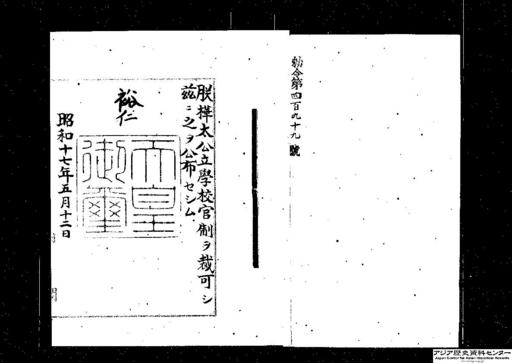 勅令第四百九十九號
朕樺太公立學校官制ヲ裁可シ
茲ニ之ヲ公布セシム
裕仁
天皇
御璽
昭和十七年五月十二日
アジア歴史資料センター
Japan Center for Asian Historical Records